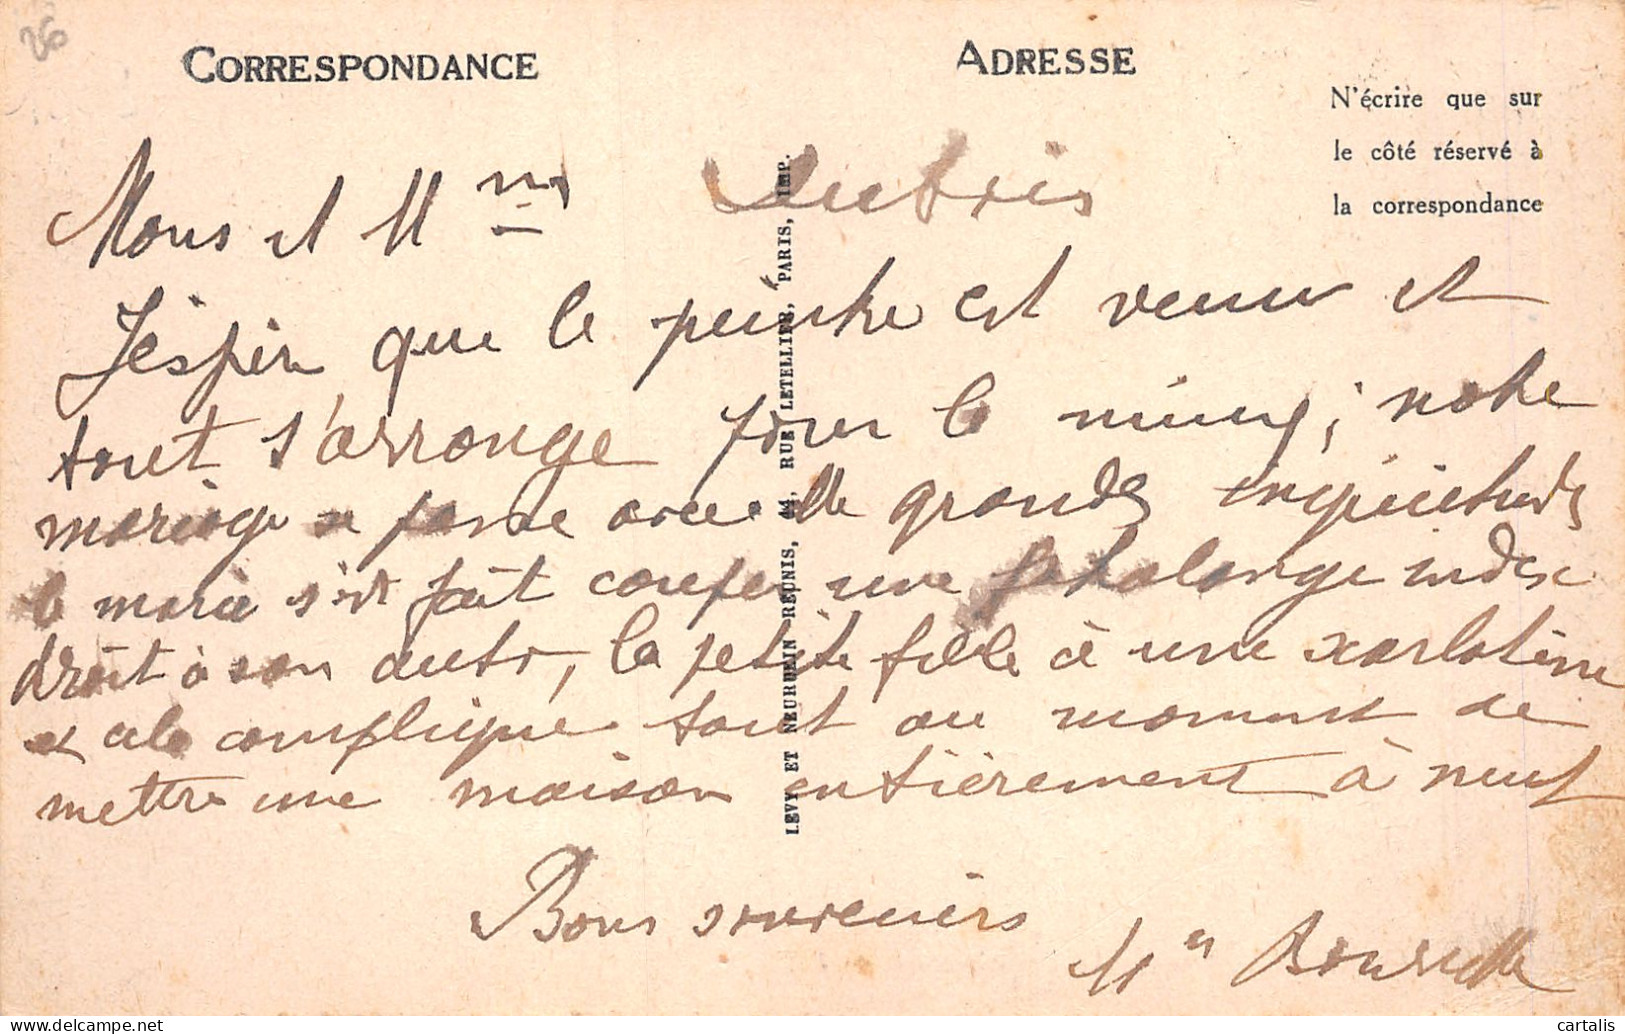 26
CORRESPONDANCE
ADRESSE
N'écrire que sur
le côté réservé à
la correspondance
Mons et M me
J'espère que le peintre est venu et
tout s'arrange pour le mieux ; notre
mariage se passe avec de grandes inquiétudes
le marié s'est fait couper une phalange index
droit à son auto, la petite fille a une scarlatine
et cela complique tout au moment de
mettre une maison entièrement à neuf
Bons souvenirs
LEVY ET NEURDEIN REUNIS, 44, RUE LETELLIER, PARIS, IMP.
cartalis
www.delcampe.net